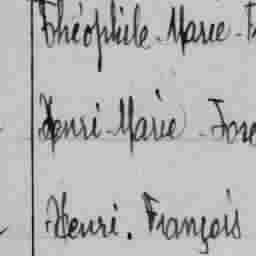 Théophile-Marie-
Henri-Marie-
Henri. François